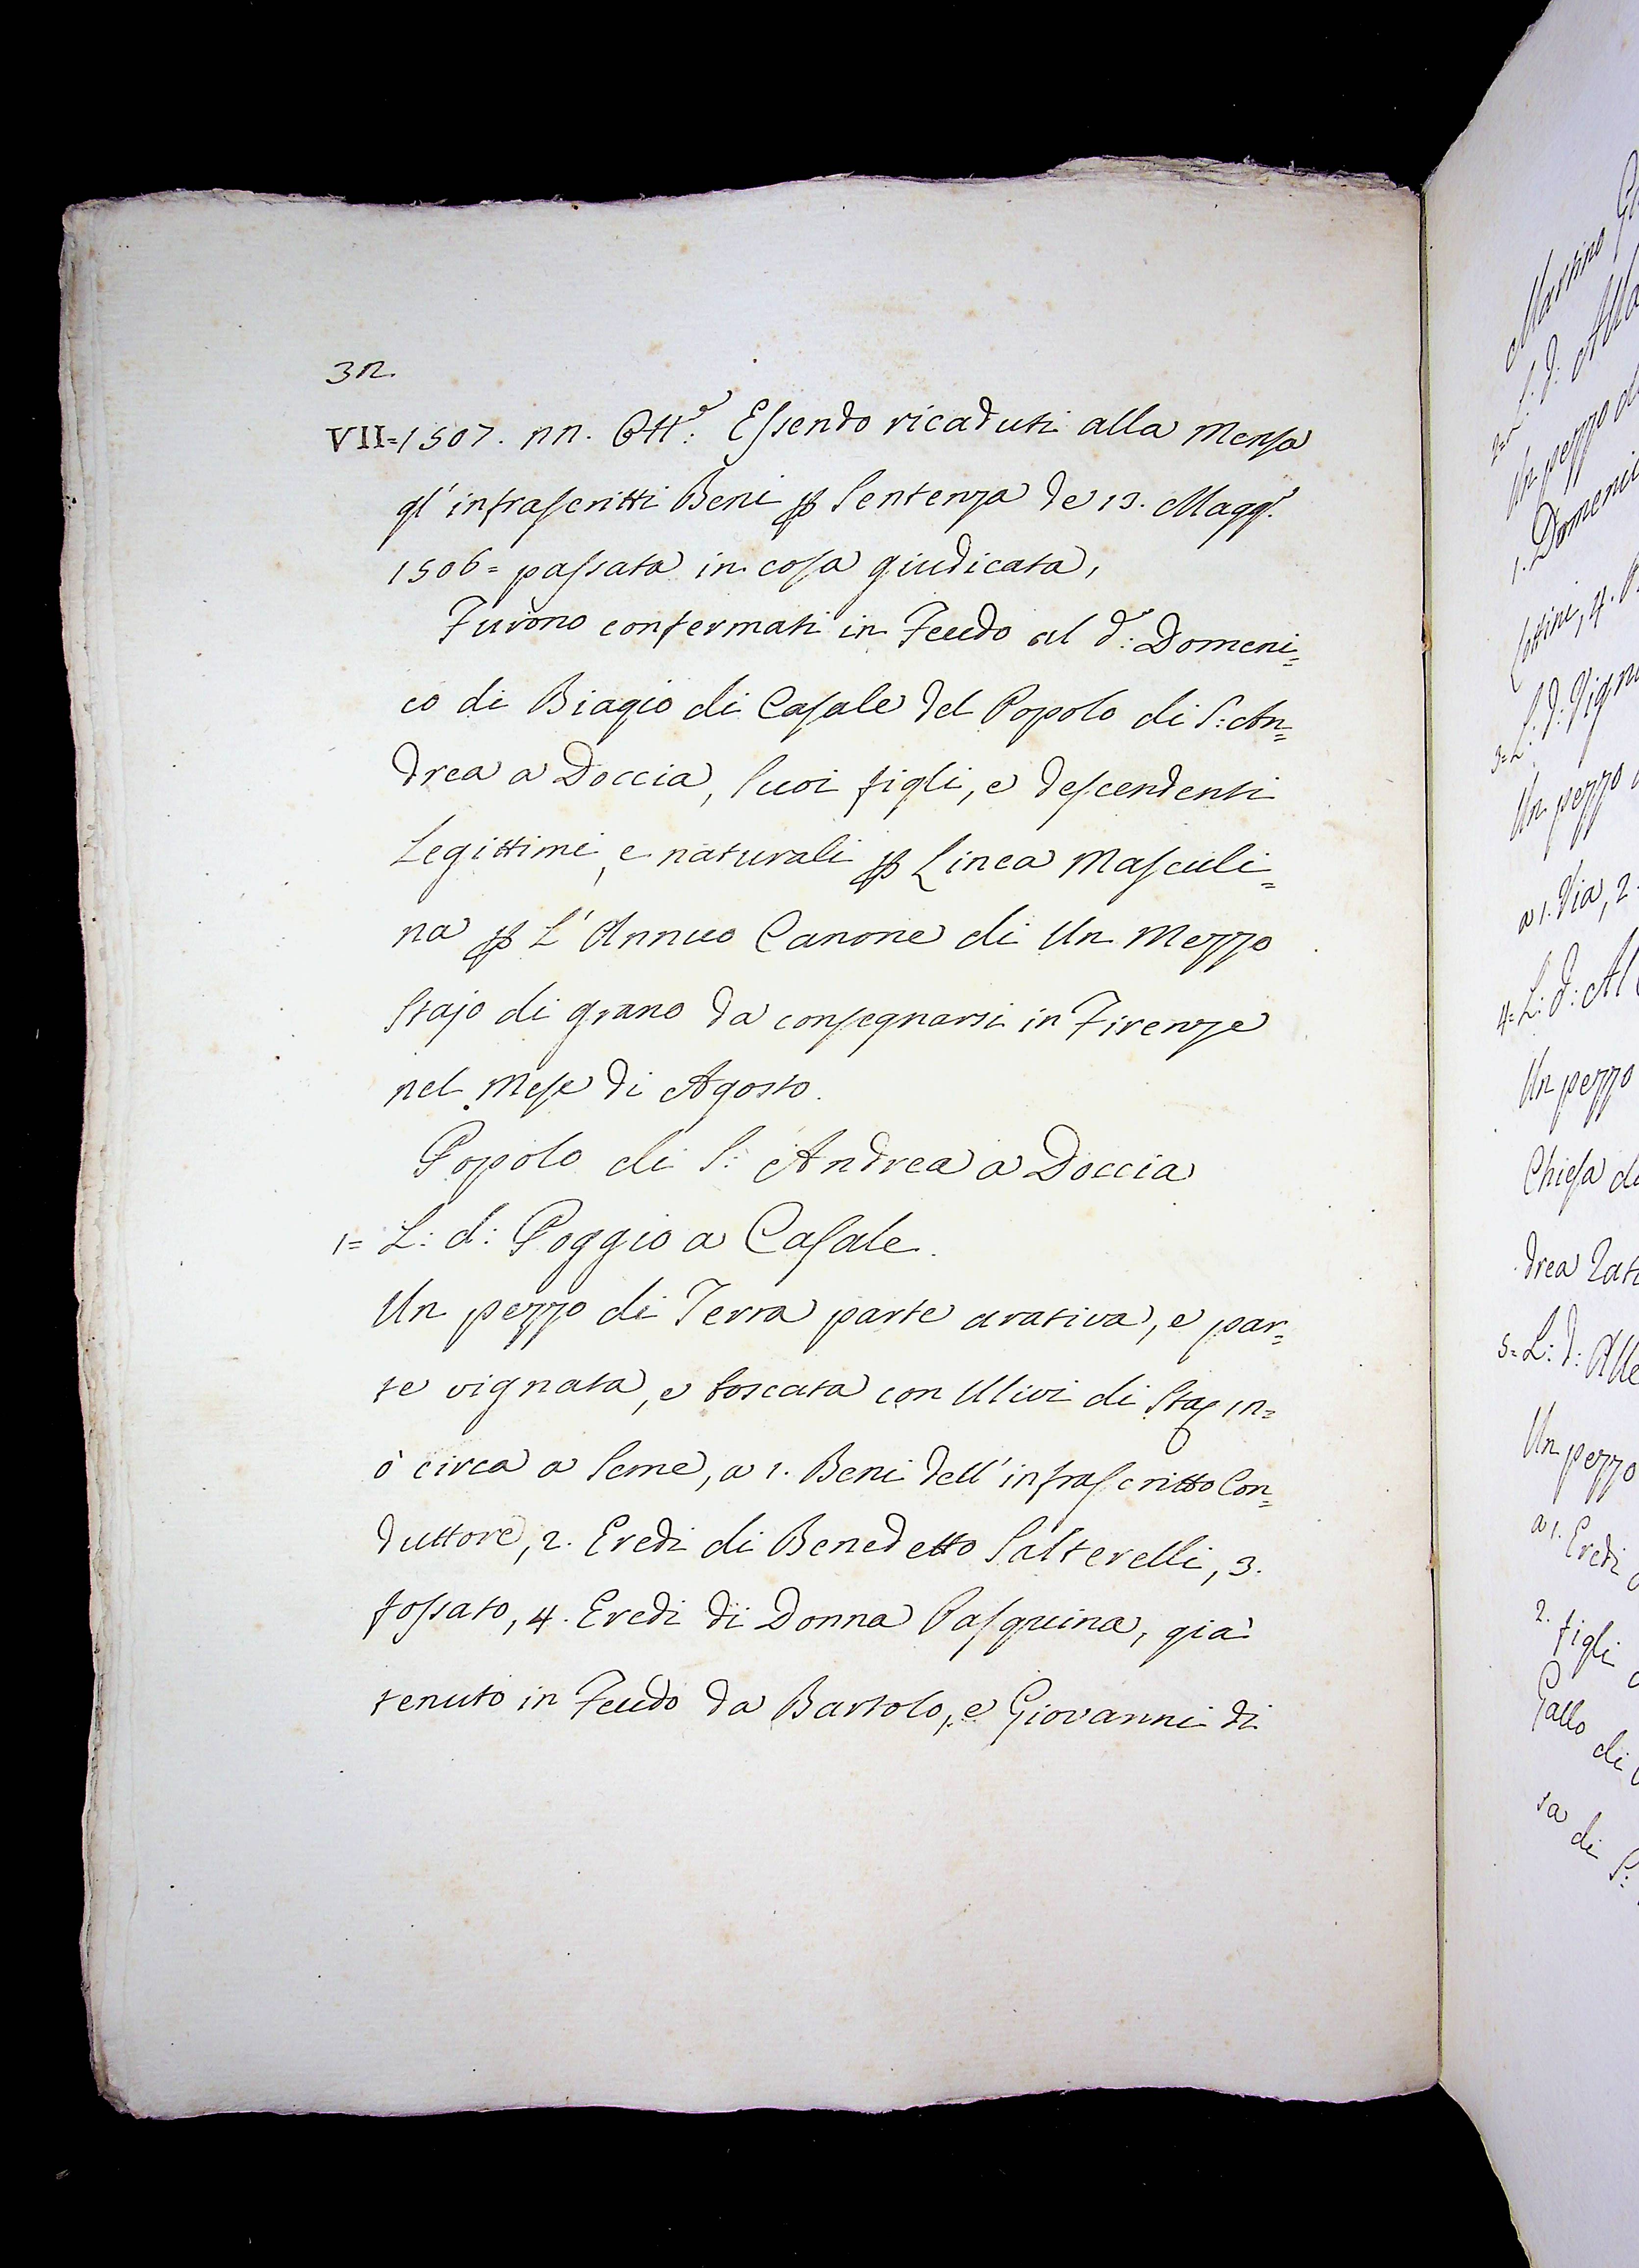 32.
VII=1507. 22. Ott.e: Essendo ricaduti alla Mensa
gl'infrascritti Beni p Sentenza de 13. Magg.o
1506= passata in cosa giudicata,
Furono confermati in Feudo al d.o: Domeni=
co di Biagio di Casale del Popolo di S: An=
drea a Doccia, Suoi figli, e descendenti
Legittimi, e naturali p Linea Masculi=
na p L'Annuo Canone di Un Mezzo
Stajo di grano da consegnarsi in Firenze
nel Mese di Agosto.
Popolo di S: Andrea a Doccia
1= L: d: Poggio a Casale.
Un pezzo di Terra parte arativa, e par=
te vignata, e boscata con Ulivi di Staj 12=
ò circa a Seme, a 1. Beni dell'infrascritto Con=
duttore, 2. Eredi di Benedetto Salterelli, 3.
fossato, 4. Eredi di Donna Pasquina, già
tenuto in Feudo da Bartolo, e Giovanni di
Martino
2= L: d:
Un pezzo
1. Domeni
3= L: d: Vign
Un pezzo
a 1. Via, 2.
4= L: d: Al
Un pezzo
Chiesa d
drea
5= L: d: Alle
Un pezzo
a 1. Eredi
2. figli
Gallo di
sa di S: